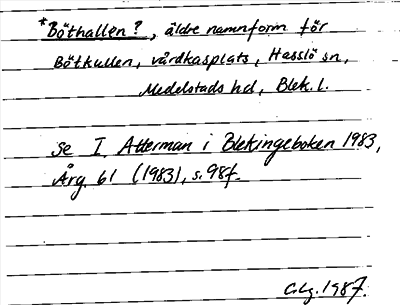 *Böthallen?, äldre namnform för
Bötkullen, vårdkasplats, Hasslö sn,
Medelstads hd, Blek. l.
se I. Atterman i Blekingeboken 1983,
Årg. 61 (1983), s. 98f.
C.Lg. 1987.